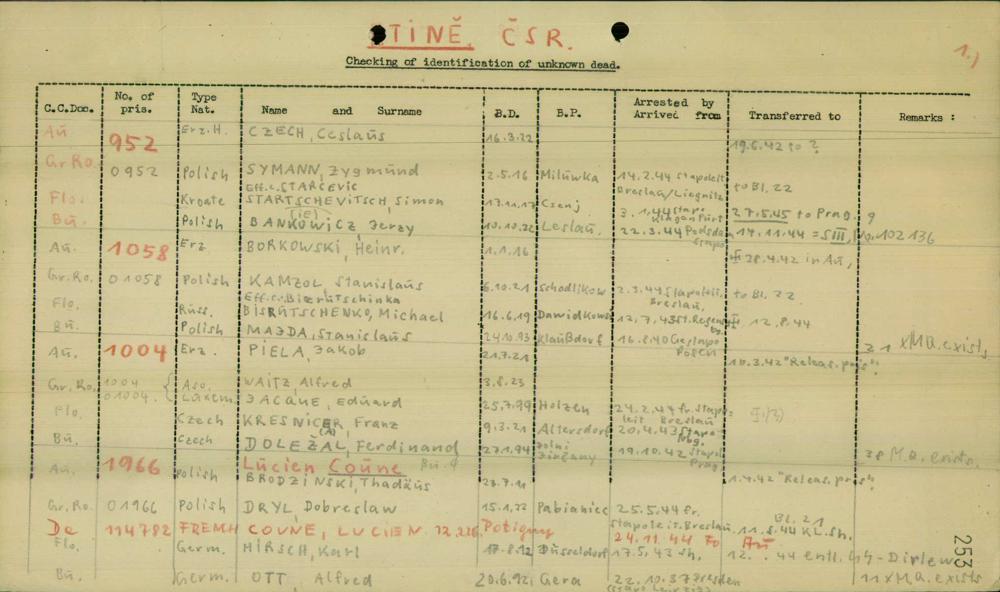 TINĚ, ČSR.
1.)
Checking of identification of unknown dead.
C.C.Doc. No. of pris. Type Nat. Name and Surname B.D. B.P. Arrested by Arrived from Transferred to Remarks :
Au. 952 Erz.H. CZECH, Ceslaus 16.3.22 19.6.42 to ?
Gr.Ro. 0952 Polish SYMANN, Zygmund 2.5.16 Milówka 14.2.44 Stapoleit Breslau/Liegnitz to Bl. 22
Eff.c. STARCEVIC
Flo. Kroate STARTSCHEVITSCH, Simon 17.11.17 Csenj 3.1.44 Stapo Klagenfurt 27.5.45 to Prag. 9
Bu. Polish BANKOWICZ, Jerzy 10.10.22 Leslau, 22.3.44 Potsdam Stapo 14.11.44 = SIII, No. 102136
(IE)
Au. 1058 Erz BORKOWSKI, Heinr. 1.1.16 28.4.42 in Au,
Gr.Ro. 01058 Polish KAMZOL, Stanislaus 6.10.21 Schodlikow 2.3.44 Stapoleit. Breslau, to Bl. 22
Eff.c. Bierutschinka
Flo. Russ. BISRUTSCHENKO, Michael 16.6.19 Dawidkowa 12.8.44
Bu. Polish MAJDA, Stanislaus 24.10.93 Klaußdorf 16.8.40 Gestapo Posen xM.a. exists
Au. 1004 Erz. PIELA, Jakob 21.7.21 10.3.42 "Releas. pris".
Gr.Ro. 1004 01004. Aso. WAITZ, Alfred 3.8.23
Luxem. JACQUE, Eduard 25.7.99 Holzen 24.2.44 fr. Stapoleit Breslau
Flo. Czech KRESNICER, Franz 9.3.21 Altersdorf 20.4.43 Stapo Nbg.
(A)
Bu. Czech DOLEŽAL, Ferdinand 27.1.94 Dolni 19.10.42 Stapo Prag M.a. exists.
Au. 1966 Lucien Coune Bu.
Polish BRODZINSKI, Thadäus 23.7.11 1.4.42 "Releas. pris".
Gr.Ro. 01966 Polish DRYL, Dobreslaw 15.1.22 Pabianiec 25.5.44 fr. Stapoleit. Breslau Bl. 21
Da 114782 FREMH COUNE, LUCIEN. Potigny 24.11.44 Fo 11.5.44 KL.Sh. Au
Flo. Germ. HIRSCH, Karl 17.8.12 Düsseldorf 17.5.43 Sh. 44 entl. - Dirlew
Bu. Germ. OTT, Alfred 20.6.92 Gera 22.10.37 Dresden 11 xM.a. exists
253